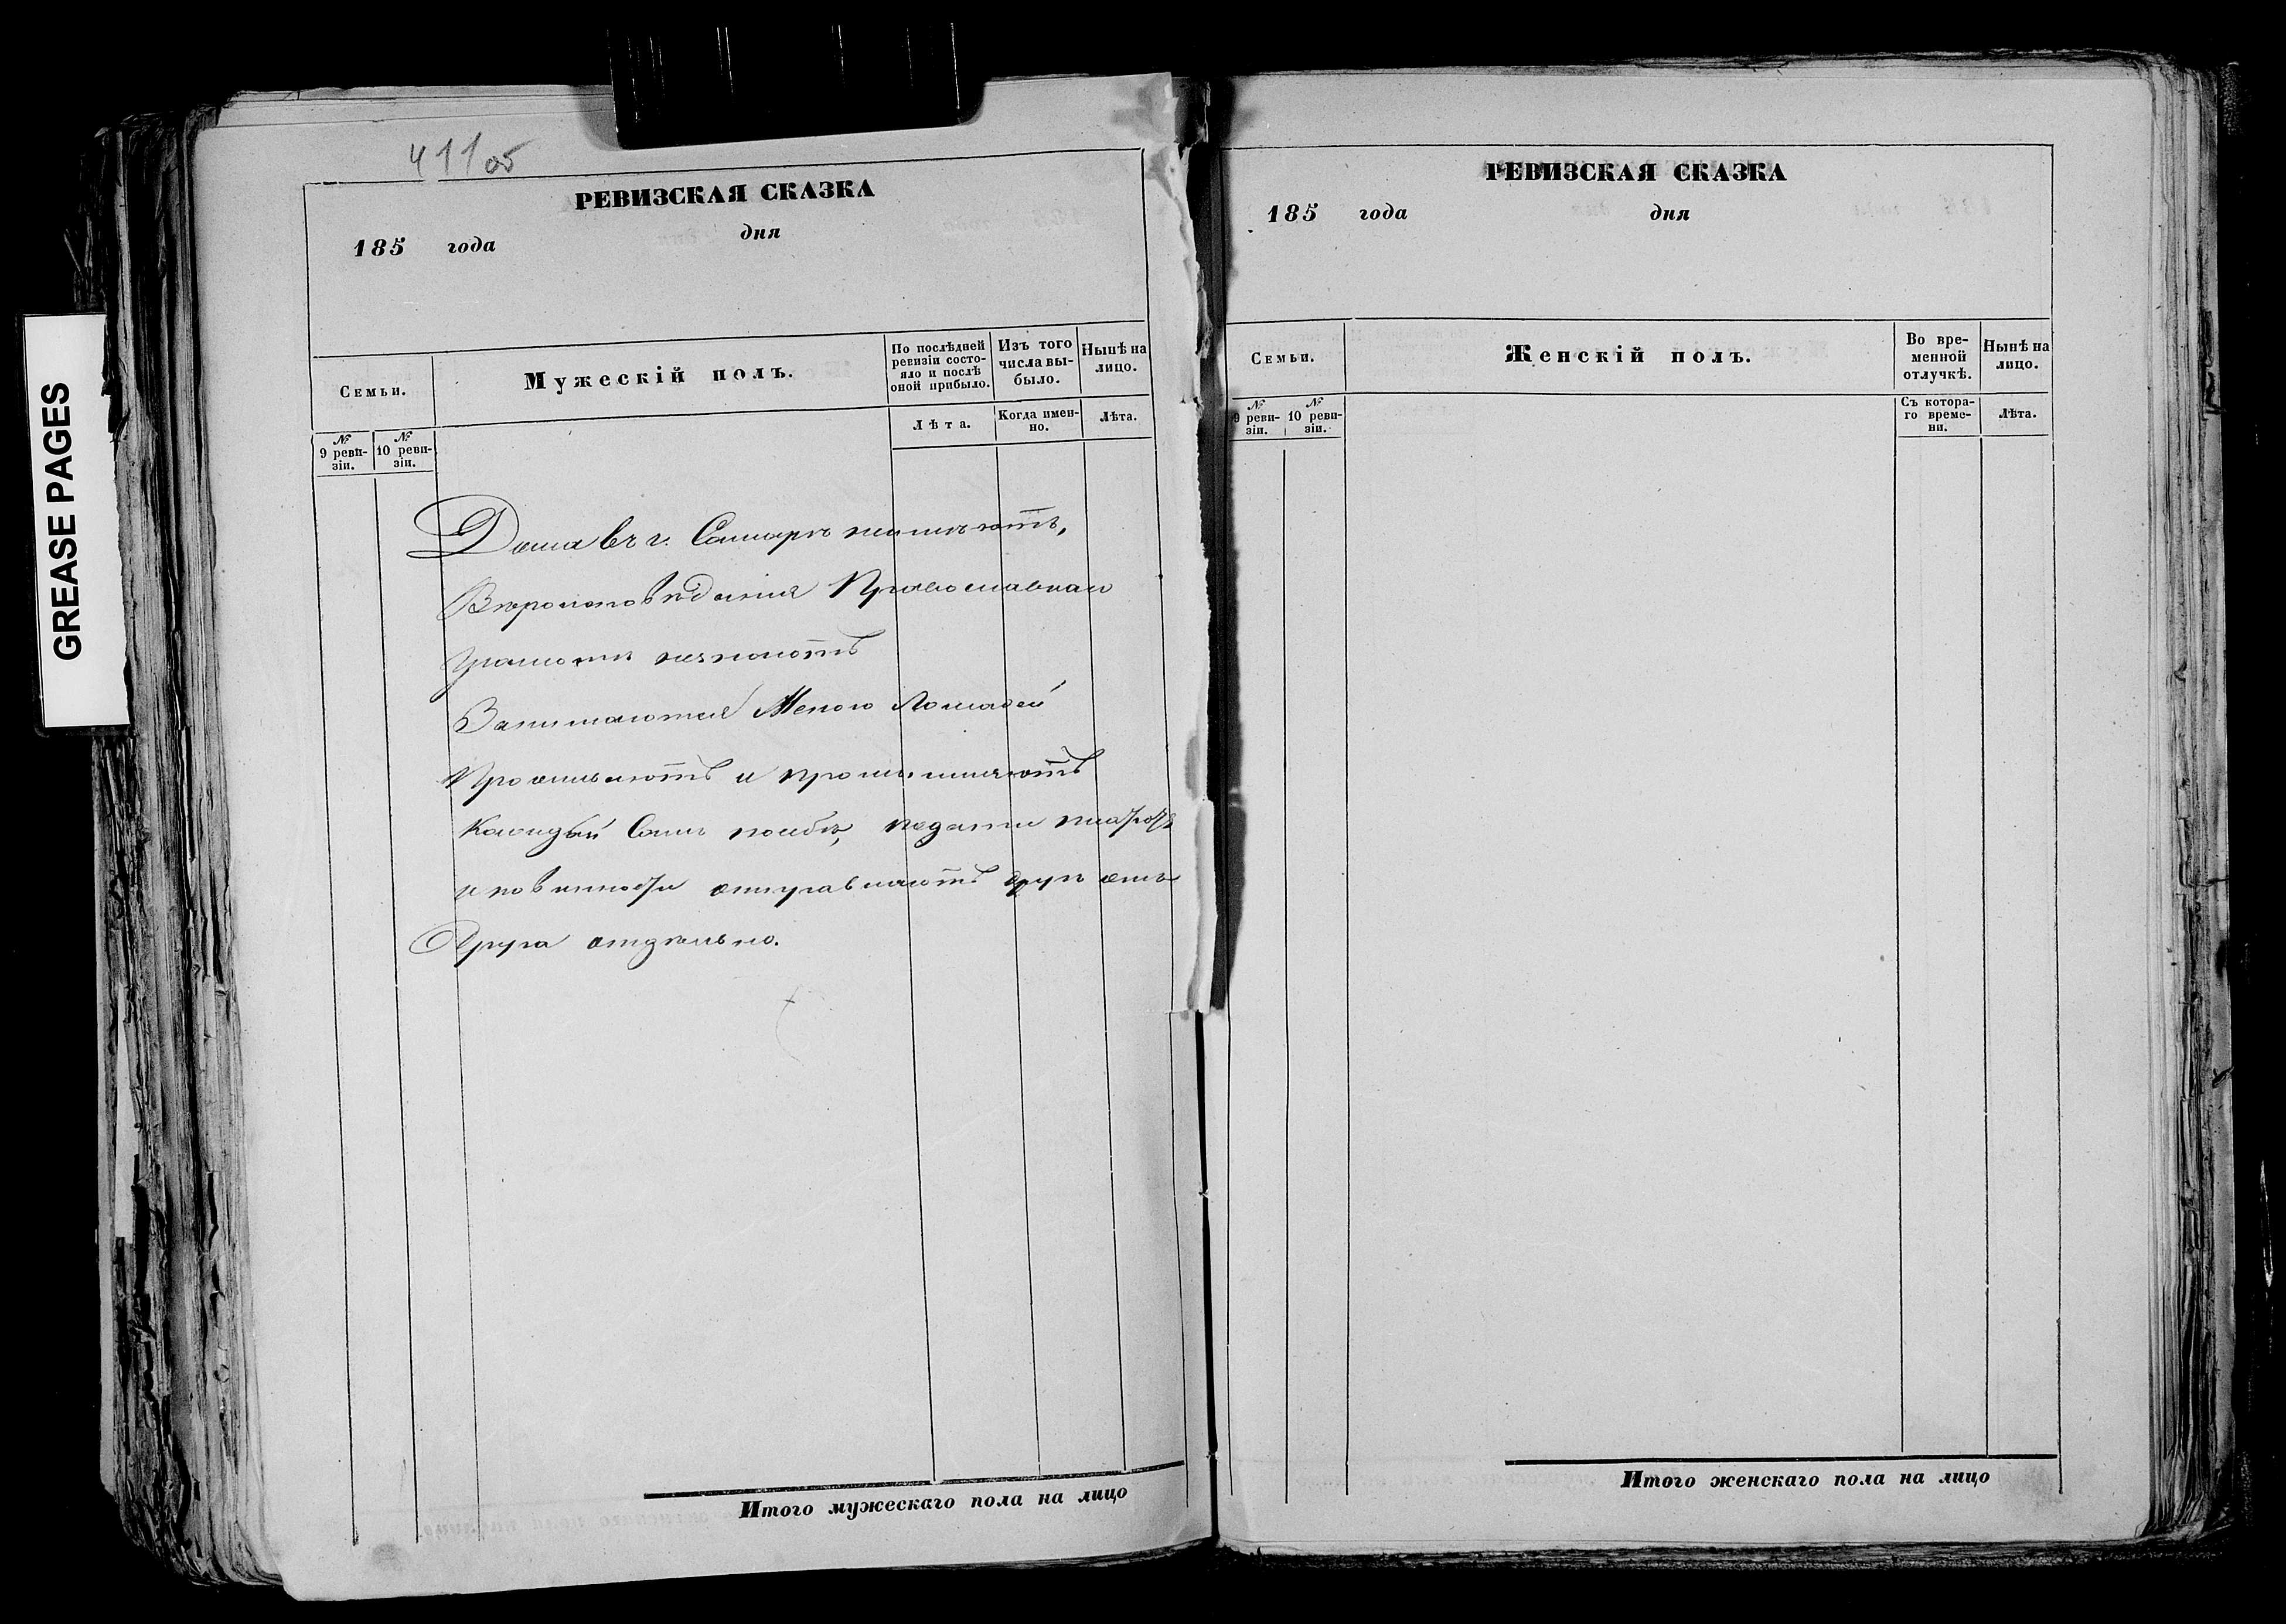 GREASE PAGES
411 об
РЕВИЗСКАЯ СКАЗКА
185 года дня
Семьи.
Мужескій полъ.
По послѣдней ревизіи состояло и послѣ оной прибыло.
Изъ того числа выбыло.
Нынѣ на лицо.
№ 9 ревизіи.
№ 10 ревизіи.
Лѣта.
Когда именно.
Лѣта.
Дома въ г. Самарѣ неимѣютъ,
Вѣроисповѣданія Православнаго
Грамоти незнаютъ
Занимаются Меною Лошадей
Проживаютъ и промышляютъ
Каждый Самъ посебѣ, подати платятъ
и повинности отправляютъ другъ отъ
Друга отдѣльно.
Итого мужескаго пола на лицо
РЕВИЗСКАЯ СКАЗКА
185 года дня
Семьи.
Женскій полъ.
Во временной отлучкѣ.
Нынѣ на лицо.
№ 9 ревизіи.
№ 10 ревизіи.
Съ котораго времени.
Лѣта.
Итого женскаго пола на лицо